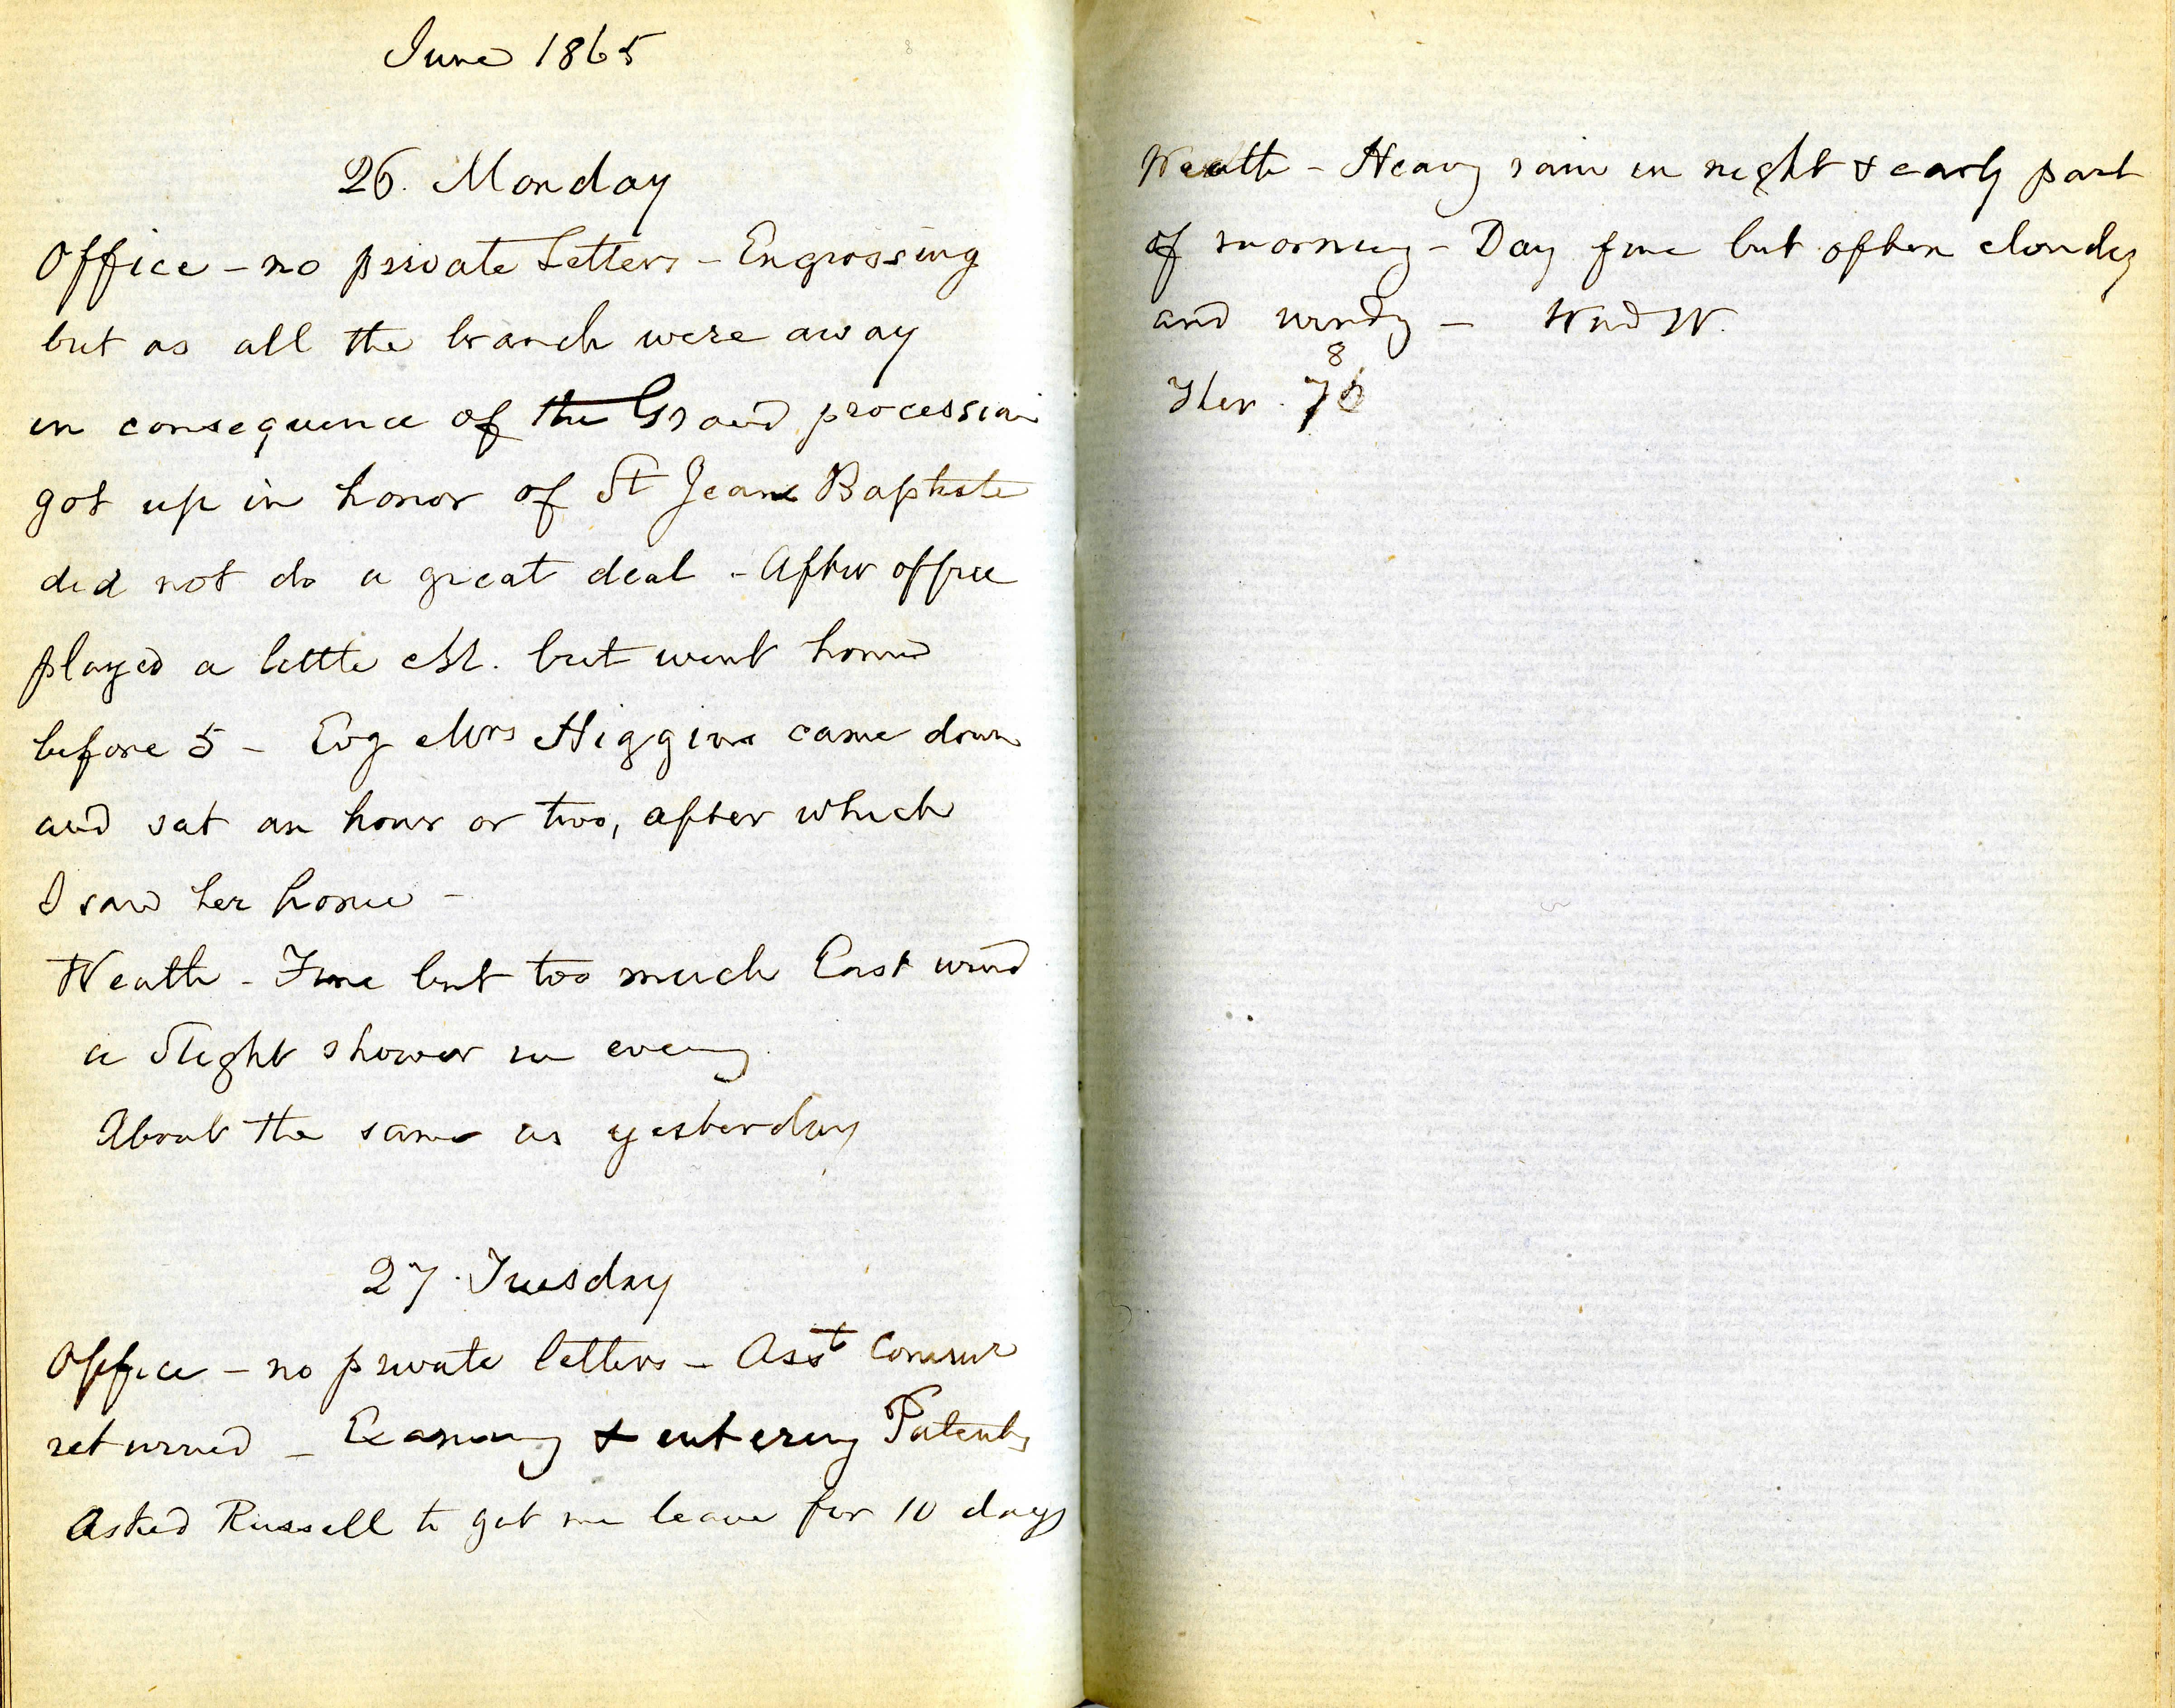 June 1865
26. Monday
Office - no private Letters - Engrossing
but as all the branch were away
in consequence of the Grand procession
got up in honor of St Jean Baptiste
did not do a great deal - After office
played a little but went home
before 5 - Evg Mrs Higgins came down
and sat an hour or two, after which
I saw her home -
Weath - Fine but too much East wind
a slight shower in evening
About the same as yesterday
27. Tuesday
Office - no private letters - Asst
returned - & entering Patents
Asked Russell to get me leave for 10 days
Weath - Heavy rain in night & early part
of morning - Day fine but often cloudy
and windy - Wind W.
8
Ther. 76